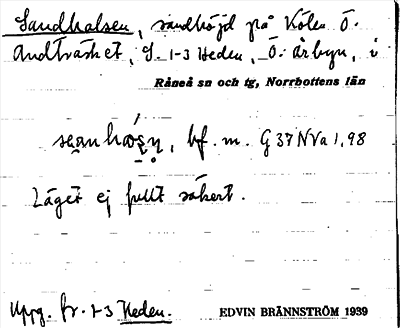 Sandhalsen, sandhöjd på Kölen Ö.
Andträsket, S. 1-3 Heden, Ö. Årbyn, i
Råneå sn och tg, Norrbottens län
bf. m. G 37 NVa 1,98
Läget ej fullt säkert.
Uppg. fr. 1-3 Heden.
EDVIN BRÄNNSTRÖM 1939